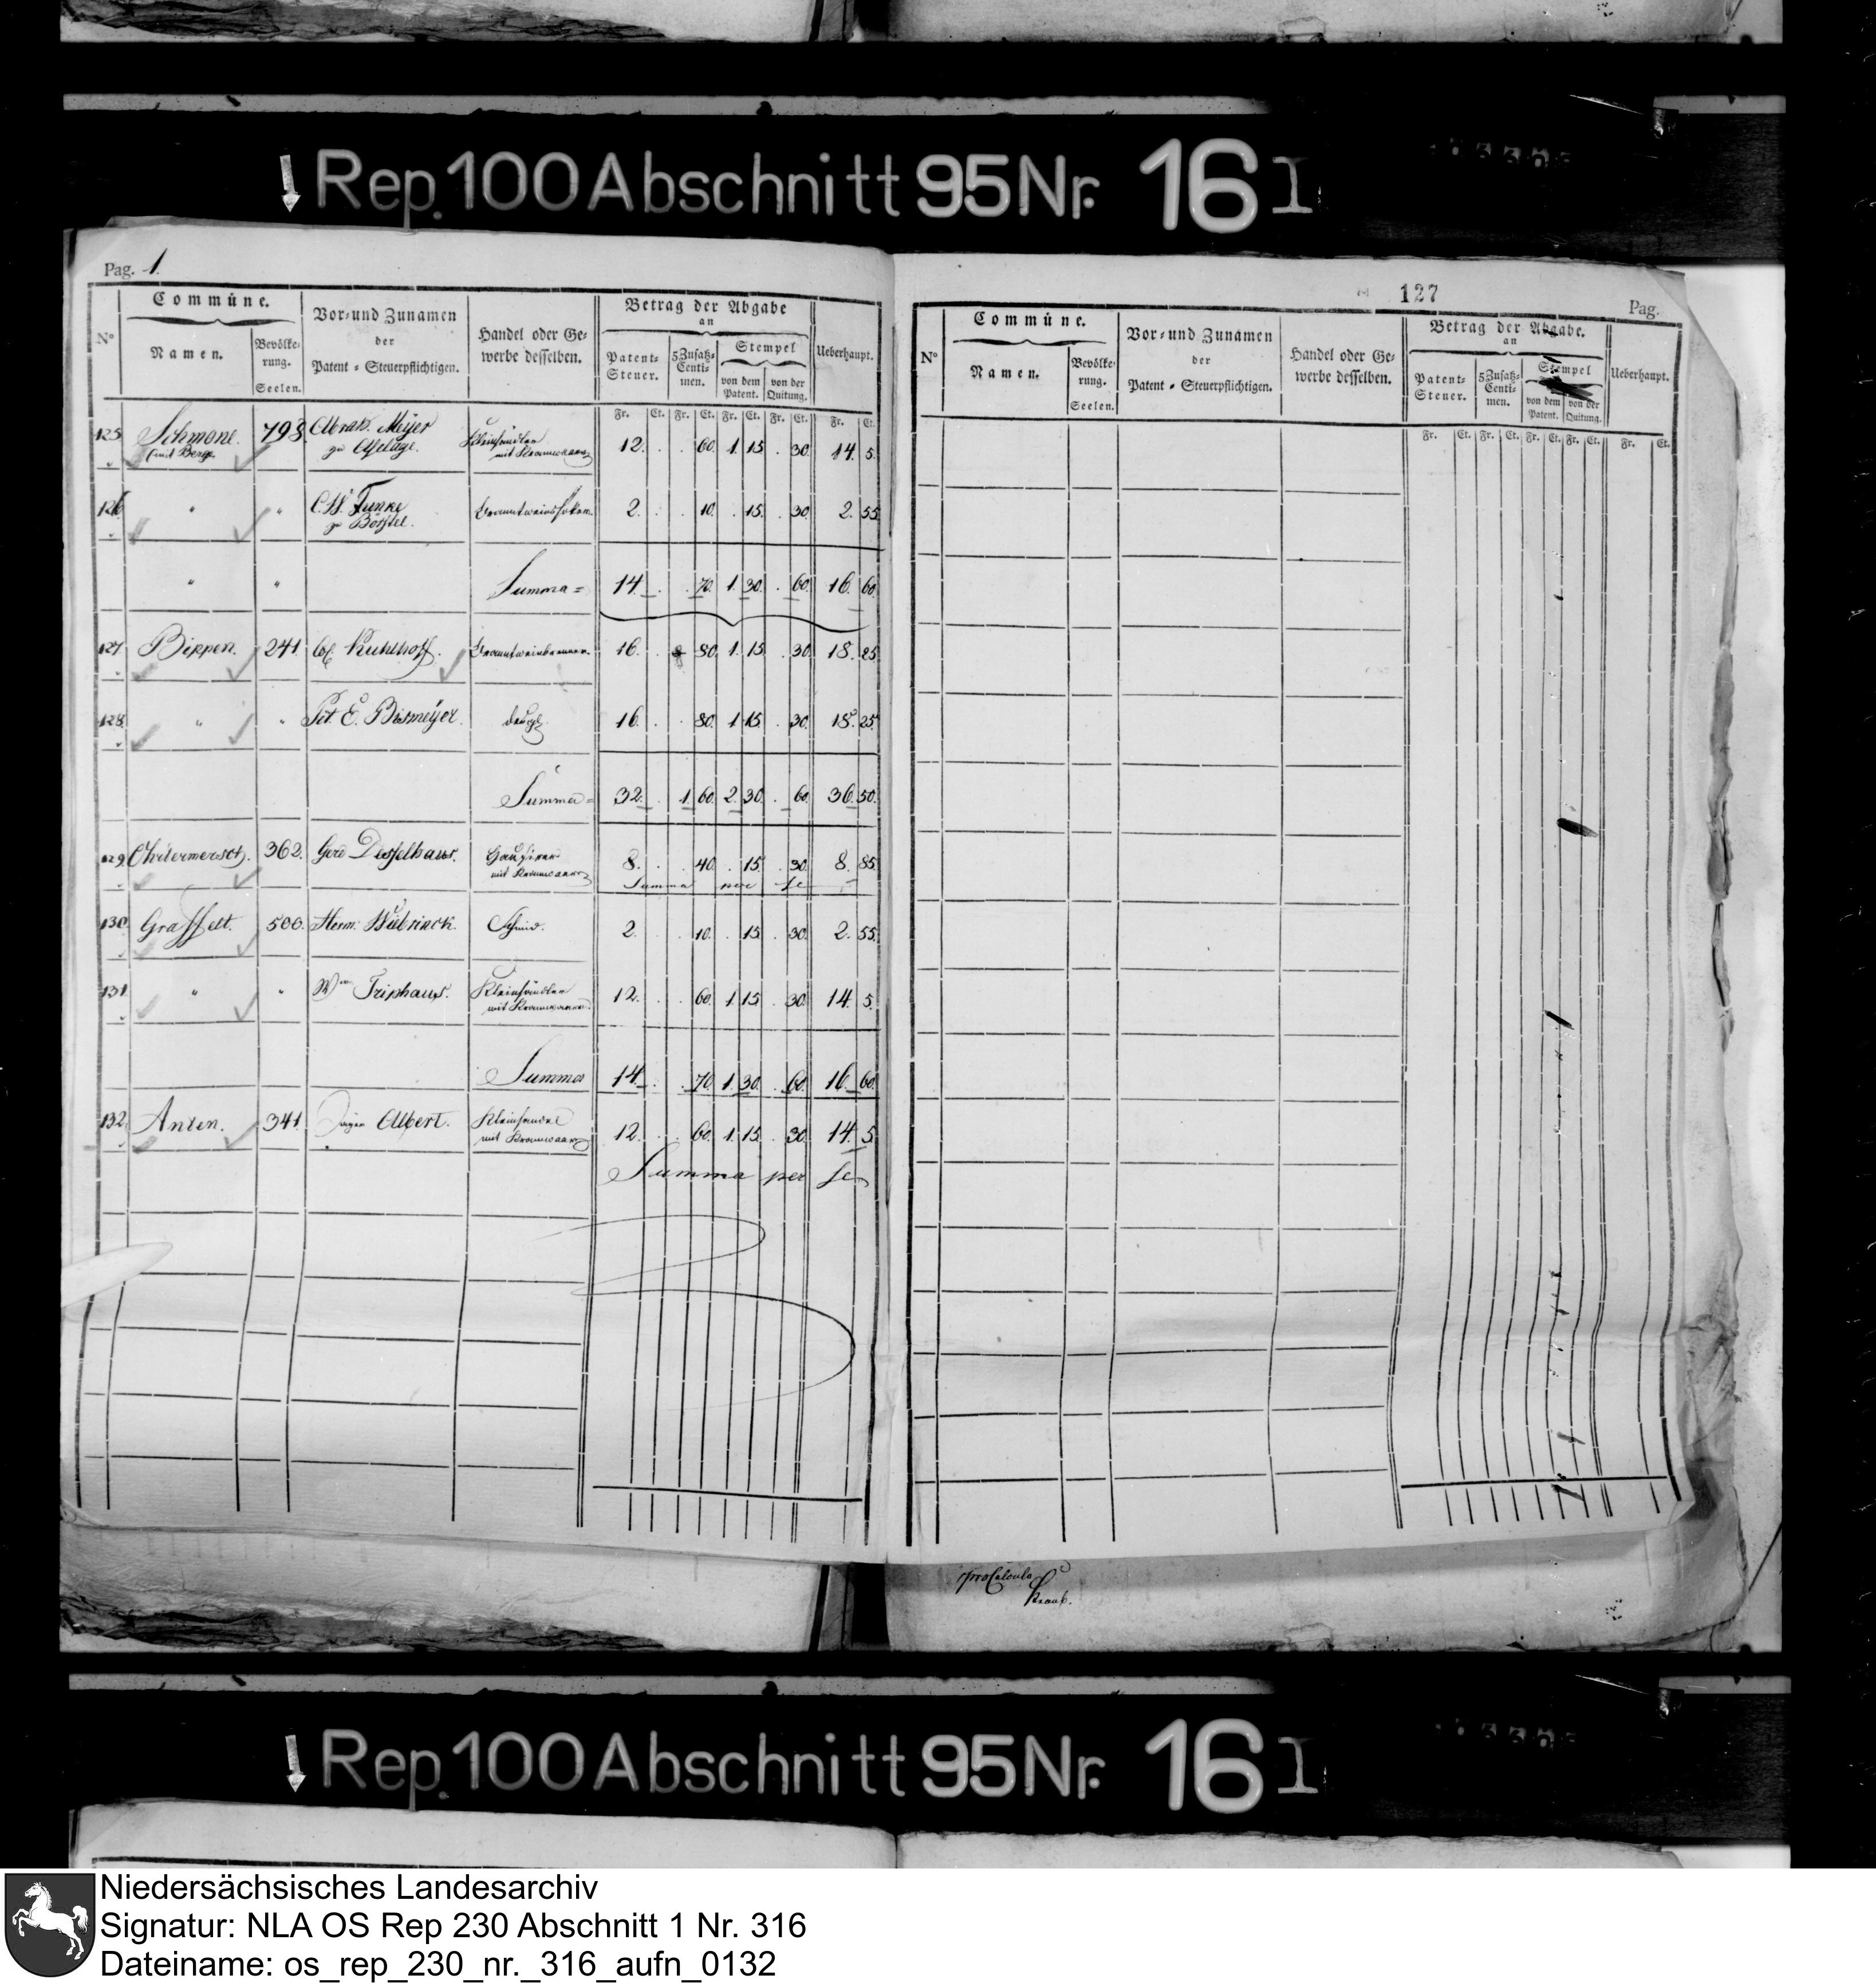 Rep. 100 Abschnitt 95 Nr. 16 I
Pag. 1.
N°
Commüne.
Namen.
Bevölke-
rung.
Seelen.
Vor- und Zunamen
der
Patent-Steuerpflichtigen.
Handel oder Ge-
werbe desselben.
Betrag der Abgabe
an
Patent-
Steuer.
5 Zusatz-
Centi-
men.
Stempel
von dem
Patent.
von der
Quitung.
Ueberhaupt.
Fr. Ct. Fr. Ct. Fr. Ct. Fr. Ct. Fr. Ct.
125 Schmone. 798. Meijer Kleinhändler 12. . . 60. 1. 15. . 30. 14. 5.
(mit Berge zu mit Kramwaaren
126 " " Funke 2. . . 10. . 15. . 30. 2. 55.
zu Börstel.
" " Summa = 14. . . 70. 1. 30. . 60. 16. 60.
127 Bippen. 241. Kuhlhoff. Branntweinbrenner. 16. . 80. 1. 15. . 30. 18. 25
128. " " E. Bismeÿer. desgl. 16. . . 80. 1. 15. . 30. 18. 25.
Summa = 32. . 1. 60. 2. 30. . 60. 36. 50.
129 Ohrtermersch. 362. Gerd Hausirer 8. . . 40. . 15. . 30. 8. 85.
mit Kramwaaren Summa per se
130. Graffelt. 500. Herm. Wübrinck. Schmid. 2. . . 10. . 15. . 30. 2. 55.
131. " " Wm Triphaus. Kleinhändler 12. . . 60. 1. 15. . 30. 14. 5.
mit Kramwaaren.
Summa 14. . . 70. 1. 30. . 60. 16. 60.
132. Anten. 341. Albert. Kleinhandel 12. . . 60. 1. 15. . 30. 14. 5.
mit Kramwaaren
Summa per se
127
Pag.
N°
Commüne.
Namen.
Bevölke-
rung.
Seelen.
Vor- und Zunamen
der
Patent-Steuerpflichtigen.
Handel oder Ge-
werbe desselben.
Betrag der Abgabe.
an
Patent-
Steuer.
5 Zusatz-
Centi-
men.
Stempel
von dem
Patent.
von der
Quitung.
Ueberhaupt.
Fr. Ct. Fr. Ct. Fr. Ct. Fr. Ct. Fr. Ct.
pro Calculo
Rep. 100 Abschnitt 95 Nr. 16 I
Niedersächsisches Landesarchiv
Signatur: NLA OS Rep 230 Abschnitt 1 Nr. 316
Dateiname: os_rep_230_nr._316_aufn_0132